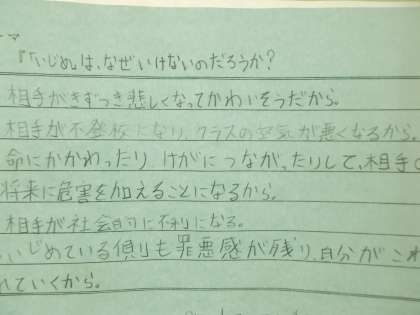 マ
『「いじめ」は、なぜいけないのだろうか?
相手がきずつき悲しくなってかわいそうだから。
相手が不登校になり、クラスの空気が悪くなるから。
命にかかわったり、けがにつながったりして、相手の
将来に危害を加えることになるから。
相手が社会的に不利になる。
いじめている側りも罪悪感が残り、自分がこ
れていくから。